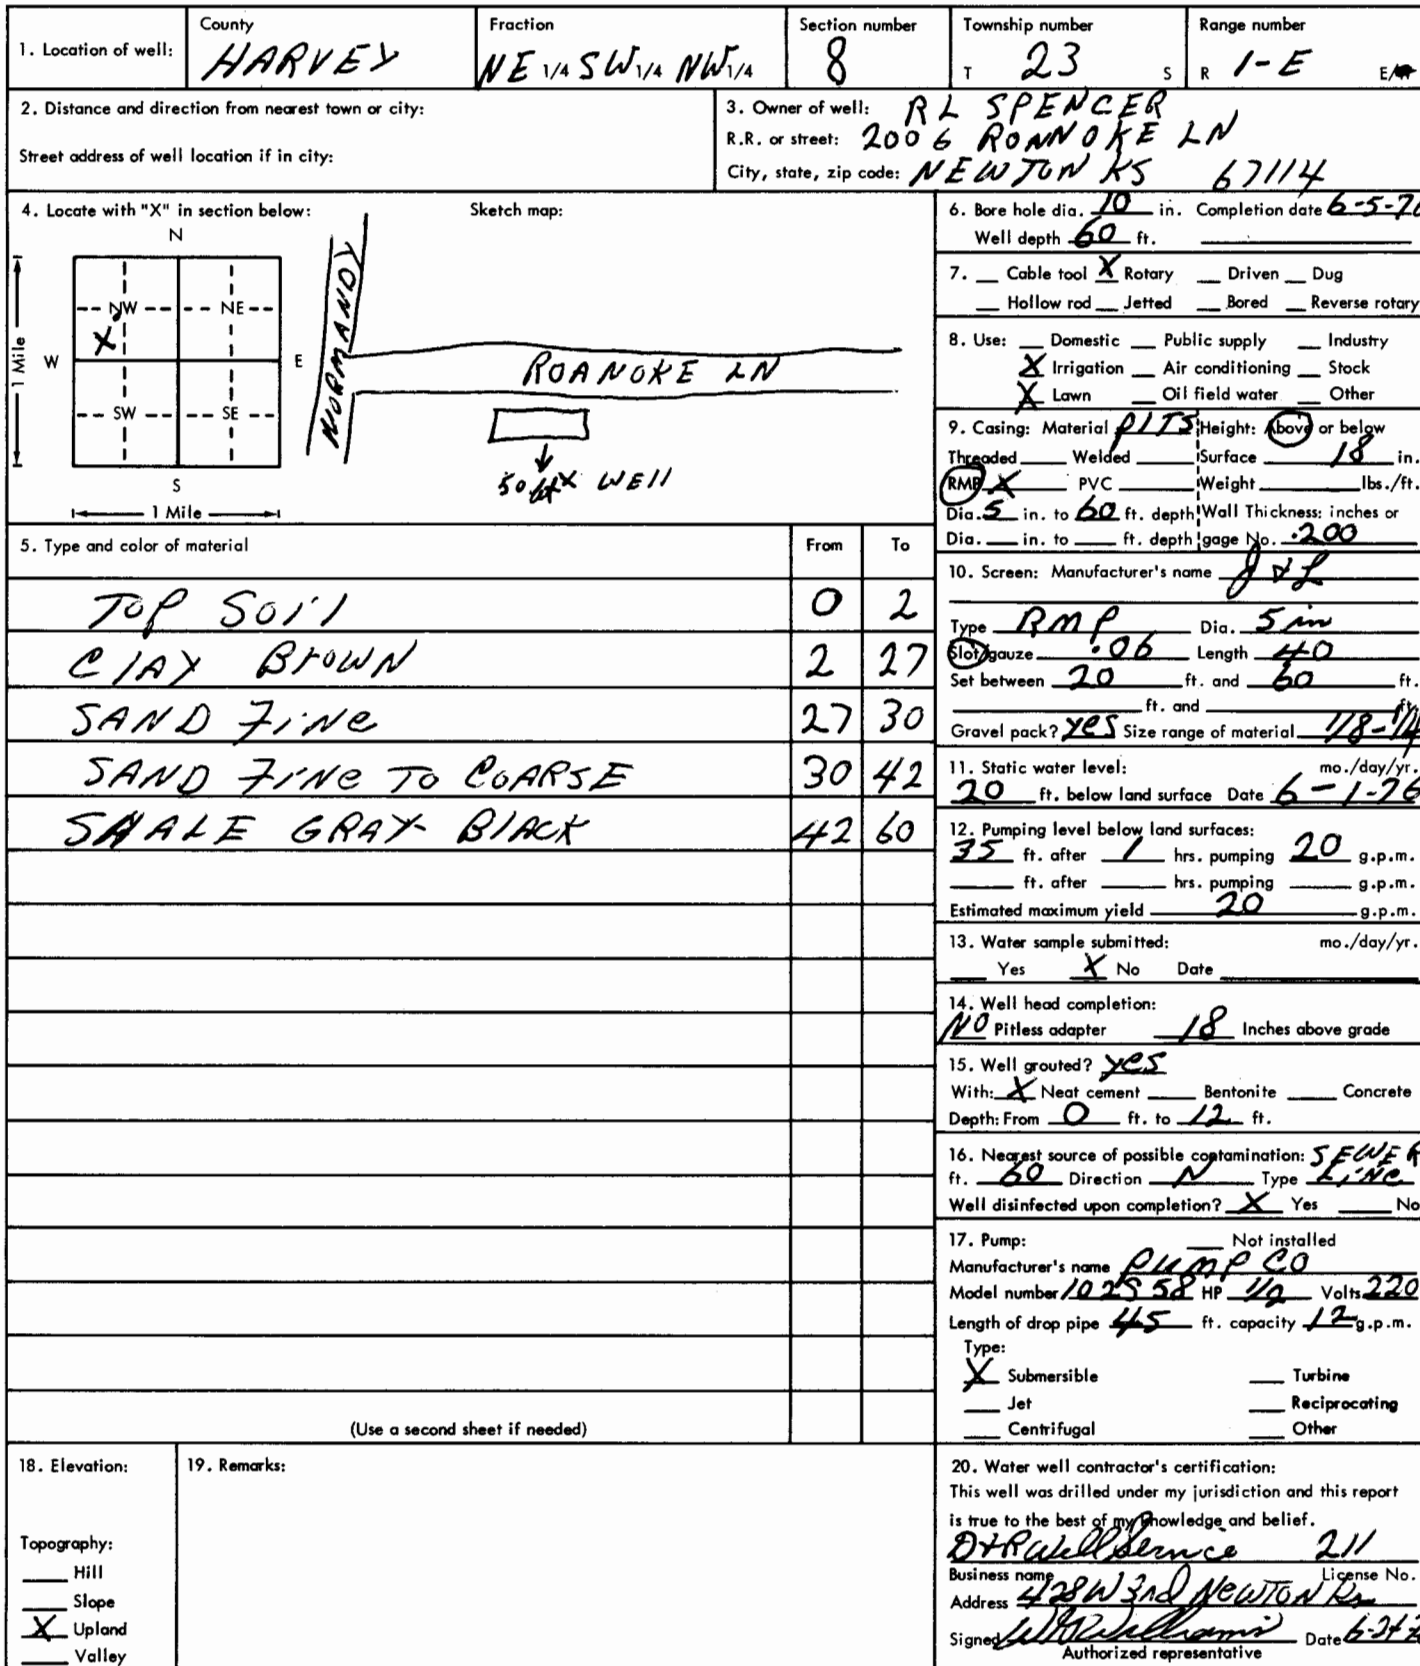 1. Location of well:
County
HARVEY
Fraction
NE 1/4 SW 1/4 NW 1/4
Section number
8
Township number
T 23 S
Range number
R 1-E E/
2. Distance and direction from nearest town or city:
Street address of well location if in city:
3. Owner of well: RL SPENCER
R.R. or street: 2006 RONNOKE LN
City, state, zip code: NEWTON KS 67114
4. Locate with "X" in section below:
Sketch map:
N
NW NE
X
W E
SW SE
S
1 Mile
1 Mile
NORMANDY
ROANOKE LN
50 X WEll
5. Type and color of material From To
TOP SOil 0 2
ClAY BrOWN 2 27
SAND FiNe 27 30
SAND FiNE TO COARSE 30 42
SHALE GRAY- BlACK 42 60
(Use a second sheet if needed)
6. Bore hole dia. 10 in. Completion date 6-5-76
Well depth 60 ft.
7. Cable tool X Rotary Driven Dug
Hollow rod Jetted Bored Reverse rotary
8. Use: Domestic Public supply Industry
X Irrigation Air conditioning Stock
X Lawn Oil field water Other
9. Casing: Material Height: Above or below
Threaded Welded Surface 18 in.
RMP X PVC Weight lbs./ft.
Dia. 5 in. to 60 ft. depth Wall Thickness: inches or
Dia. in. to ft. depth gage No. .200
10. Screen: Manufacturer's name
Type RMP Dia. 5 in
Slot/gauze .06 Length 40
Set between 20 ft. and 60 ft.
ft. and ft.
Gravel pack? yes Size range of material 1/8-1/4
11. Static water level: mo./day/yr.
20 ft. below land surface Date 6-1-76
12. Pumping level below land surfaces:
35 ft. after 1 hrs. pumping 20 g.p.m.
ft. after hrs. pumping g.p.m.
Estimated maximum yield 20 g.p.m.
13. Water sample submitted: mo./day/yr.
Yes X No Date
14. Well head completion:
NO Pitless adapter 18 Inches above grade
15. Well grouted? yes
With: X Neat cement Bentonite Concrete
Depth: From 0 ft. to 12 ft.
16. Nearest source of possible contamination: SEWER
ft. 60 Direction N Type LiNe
Well disinfected upon completion? X Yes No
17. Pump: Not installed
Manufacturer's name PUMP CO
Model number 102S58 HP 1/2 Volts 220
Length of drop pipe 45 ft. capacity 12 g.p.m.
Type:
X Submersible Turbine
Jet Reciprocating
Centrifugal Other
18. Elevation:
Topography:
Hill
Slope
X Upland
Valley
19. Remarks:
20. Water well contractor's certification:
This well was drilled under my jurisdiction and this report
is true to the best of my knowledge and belief.
D+R Well Service 211
Business name License No.
Address 428 W 3rd NEWTON Ks
Signed Williams Date
Authorized representative